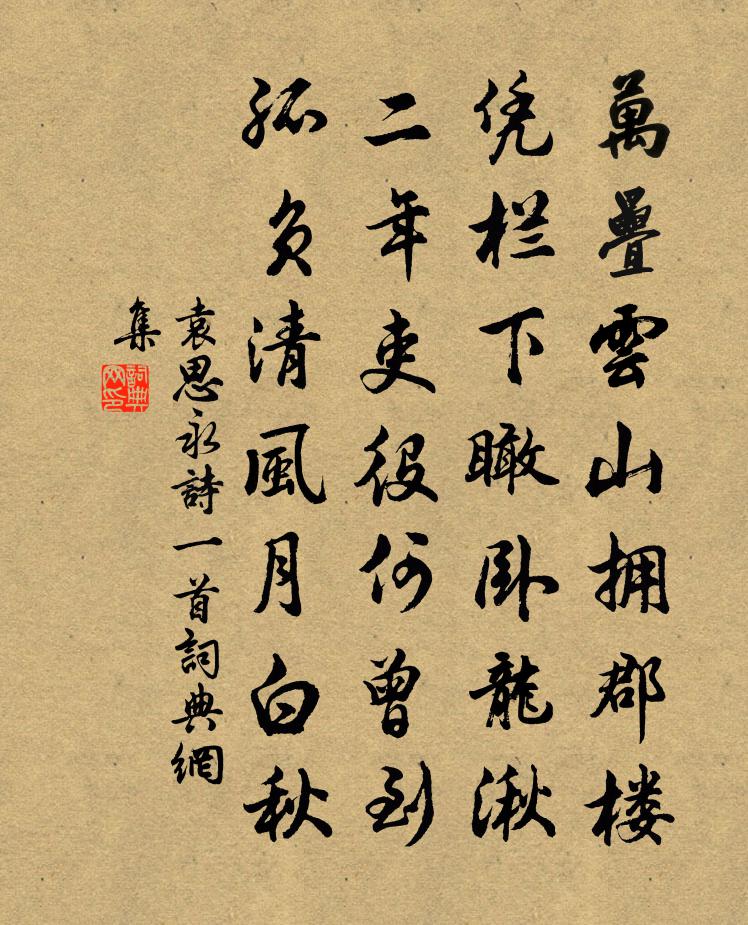 萬疊雲山拥郡楼
凭栏下瞰卧龍湫
二年吏役何曾到
孤负清風月白秋
袁思永詩一首詞典網
集
詞典
网印